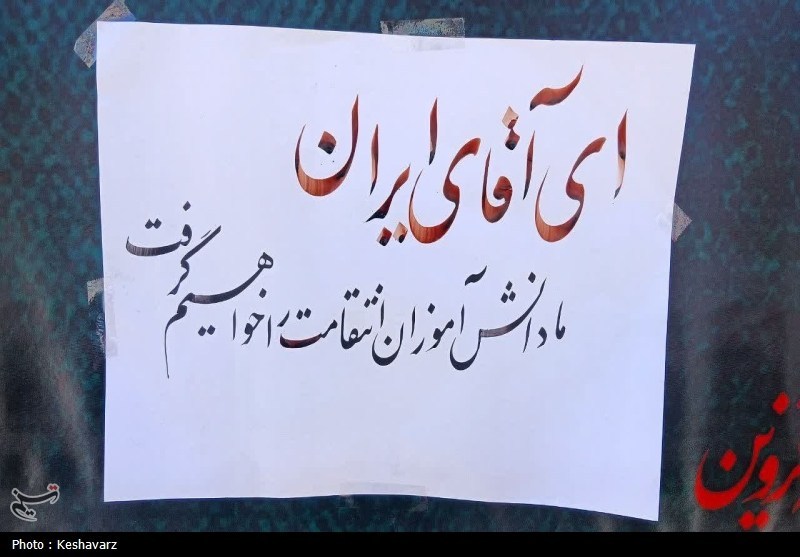 ای آقای ایران
ما دانش آموزان انتقامت را خواهیم گرفت
تسنیم
Photo : Keshavarz